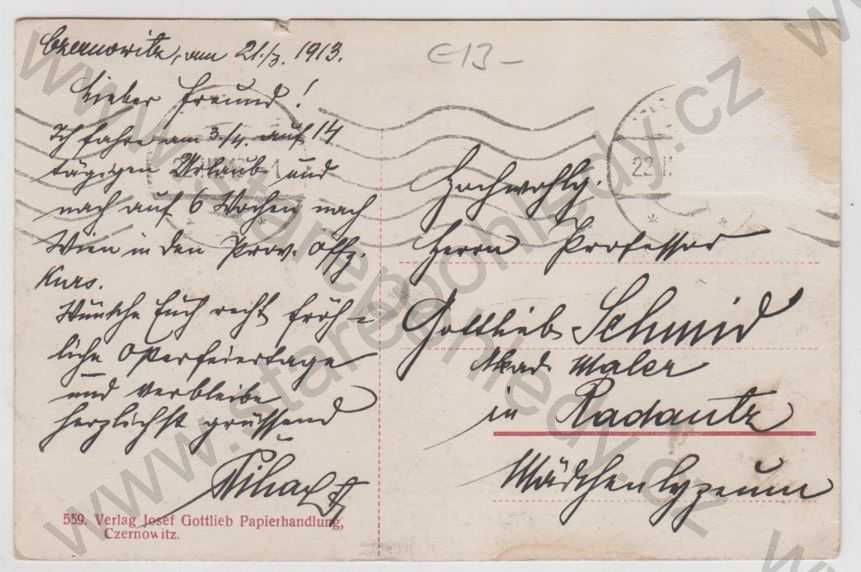 Czernowitz, am 21./3. 1913.
Lieber Freund!
Ich fahre am 3./4. auf 14
tägigen Urlaub und
nach auf 6 Wochen nach
Wien in den Prov. Offz.
Kurs.
Wünsche Euch recht fröh-
liche Osterfeiertage
und verbleibe
herzlichst grüssend
559. Verlag Josef Gottlieb Papierhandlung,
Czernowitz.
E13-
22 I
Hochwohlg.
Herrn Professor
Gottlieb Schmid
Akad. Maler
in Radautz
Mädchenlyzeum
www.starepohledy.cz